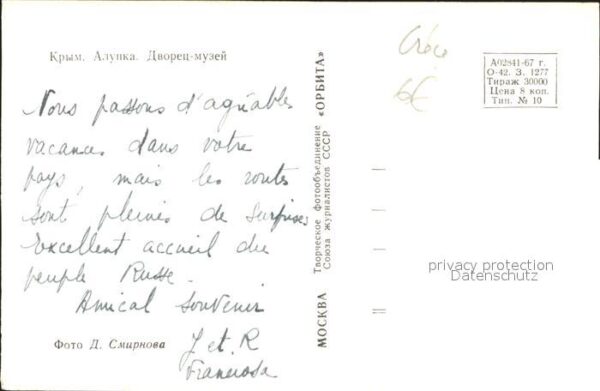 Крым. Алупка. Дворец-музей
Nous passons d'agréables
vacances dans votre
pays, mais les routes
sont pleines de surprises
Excellent accueil du
peuple Russe.
Amical souvenir
J et R
Фото Д. Смирнова
МОСКВА Творческое фотообъединение «ОРБИТА»
Союза журналистов СССР
6€
А02841-67 г.
О-42. З. 1277
Тираж 30000
Цена 8 коп.
Тип. № 10
privacy protection
Datenschutz